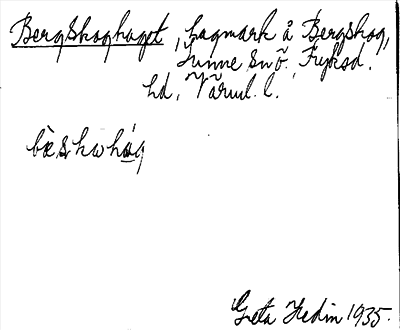 Bergskoghaget, hagmark å Bergskog,
Sunne sn õ. Fryksd.
hd, Värml. l.
bæskwhag
Greta Hedin 1935.